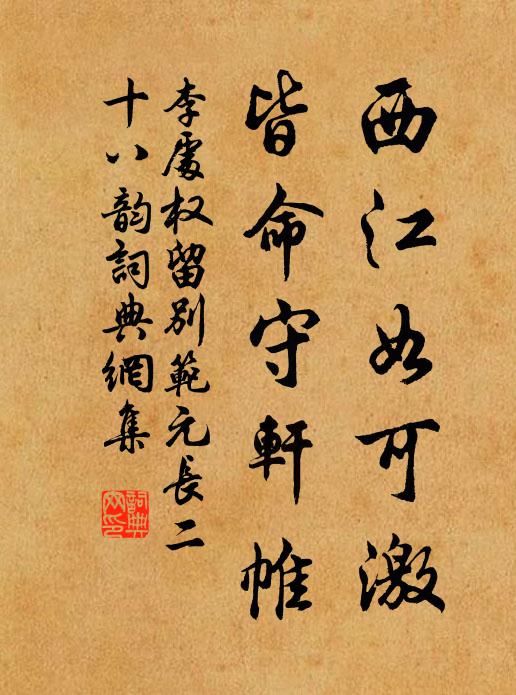 西江如可激
皆命守軒帷
李處权留别範元長二
十八韵詞典網集
詞典网印